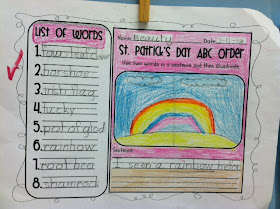 LIST OF WORDS
1. four leaf clover
2. horshoe
3. irish flag
4. lucky
5. pot of glod
6. rainbow
7. root bee
8. shamrock
Name: Beautin Date: 2-11-12
St. Patrick's Day ABC Order
Use two words in a sentence and then illustrate.
Sentence:
I seen a rainbow